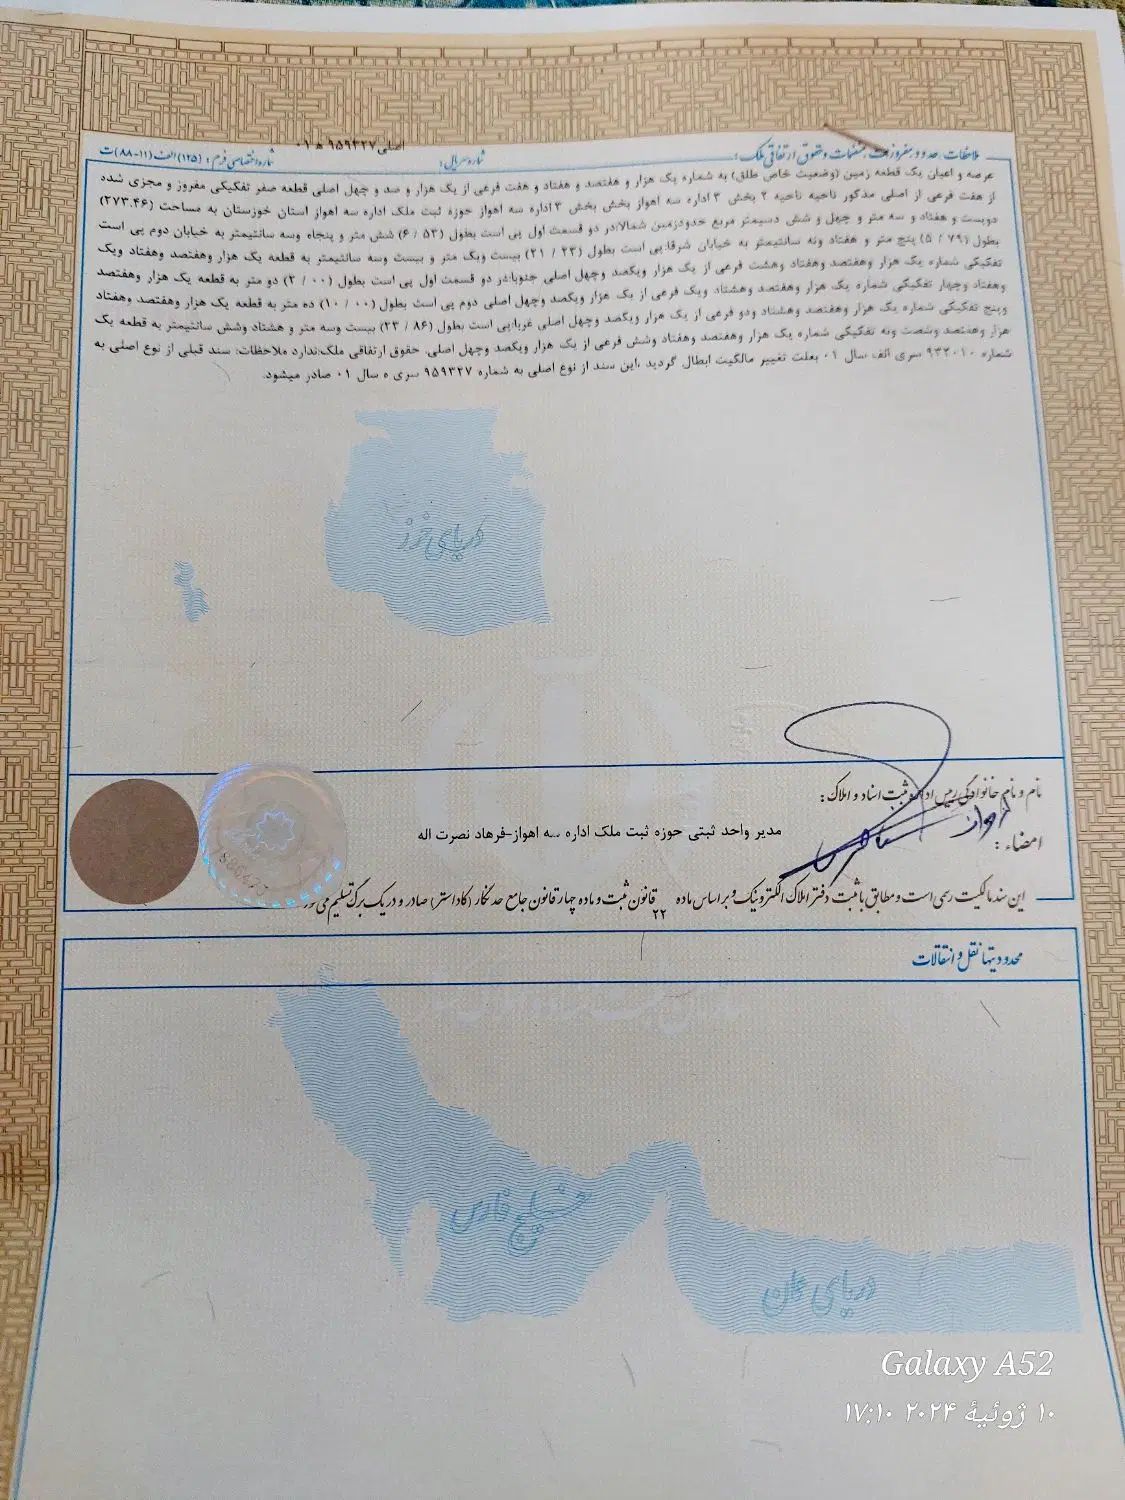 اصلی ۹۵۹۳۲۷ ه ۰۱
ملاحظات، حدود، مفروزات، منضمات و حقوق ارتفاقی ملک: شماره سریال: شماره اختصاصی فرم: (۱۲۵) الف (۱۱-۸۸) ت
عرصه و اعیان یک قطعه زمین (وضعیت خاص طلق) به شماره یک هزار و هفتصد و هفتاد و هفت فرعی از یک هزار و صد و چهل اصلی قطعه صفر تفکیکی مفروز و مجزی شده
از هفت فرعی از اصلی مذکور ناحیه ناحیه ۲ بخش ۳ اداره سه اهواز بخش بخش ۳ اداره سه اهواز حوزه ثبت ملک اداره سه اهواز استان خوزستان به مساحت (۲۷۳.۴۶)
دویست و هفتاد و سه متر و چهل و شش دسیمتر مربع حدودزمین شمالا:در دو قسمت اول پی است بطول (۵۳ / ۶) شش متر و پنجاه وسه سانتیمتر به خیابان دوم پی است
بطول (۷۹ / ۵) پنج متر و هفتاد ونه سانتیمتر به خیابان شرقا:پی است بطول (۲۳ / ۲۱) بیست ویک متر و بیست وسه سانتیمتر به قطعه یک هزار وهفتصد وهفتاد ویک
تفکیکی شماره یک هزار وهفتصد وهفتاد وهشت فرعی از یک هزار ویکصد وچهل اصلی جنوبا:در دو قسمت اول پی است بطول (۰۰ / ۲) دو متر به قطعه یک هزار وهفتصد
وهفتاد وچهار تفکیکی شماره یک هزار وهفتصد وهشتاد ویک فرعی از یک هزار ویکصد وچهل اصلی دوم پی است بطول (۰۰ / ۱۰) ده متر به قطعه یک هزار وهفتصد وهفتاد
وپنج تفکیکی شماره یک هزار وهفتصد وهشتاد ودو فرعی از یک هزار ویکصد وچهل اصلی غربا:پی است بطول (۸۶ / ۲۳) بیست وسه متر و هشتاد وشش سانتیمتر به قطعه یک
هزار وهفتصد وشصت ونه تفکیکی شماره یک هزار وهفتصد وهفتاد وشش فرعی از یک هزار ویکصد وچهل اصلی. حقوق ارتفاقی ملک:ندارد ملاحظات: سند قبلی از نوع اصلی به
شماره ۹۳۲۰۱۰ سری الف سال ۰۱ بعلت تغییر مالکیت ابطال گردید ،این سند از نوع اصلی به شماره ۹۵۹۳۲۷ سری ه سال ۰۱ صادر میشود.
دریای خزر
نام و نام خانوادگی رییس اداره ثبت اسناد و املاک:
مدیر واحد ثبتی حوزه ثبت ملک اداره سه اهواز-فرهاد نصرت اله
امضاء:
این سند مالکیت رسمی است و مطابق با ثبت دفتر املاک الکترونیک و بر اساس ماده ۲۲ قانون ثبت و ماده چهار قانون جامع حدنگار (کاداستر) صادر و در یک برگ تسلیم می‌شود
محدودیتها نقل و انتقالات
خلیج فارس
دریای عمان
Galaxy A52
۱۰ ژوئیهٔ ۲۰۲۴ ۱۷:۱۰